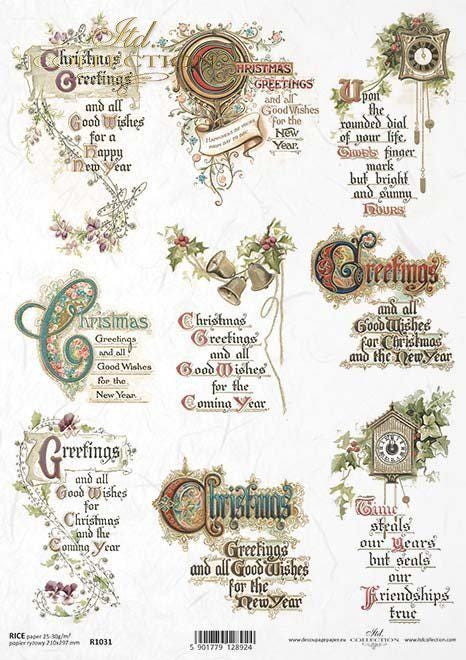 itd.
COLLECTION
Christmas
Greetings
and all
Good Wishes
for a
Happy
New Year
CHRISTMAS
GREETINGS
and all
Good Wishes
for the
New
Year.
HAPPINESS BE YOURS
FROM DAY TO DAY.
Upon
the
rounded dial
of your life,
Time's finger
mark
but bright
and sunny
hours
Christmas
Greetings
and all
Good Wishes
for the
New Year.
Christmas
Greetings
and all
Good Wishes
for the
Coming Year
Greetings
and all
Good Wishes
for Christmas
and the New Year
Greetings
and all
Good Wishes
for
Christmas
and the
Coming Year
Christmas
Greetings
and all Good Wishes
for the
New Year
Time
steals
our Years
but seals
our
Friendships
true
RICE paper 25-30g/m²
papier ryżowy 210x297 mm
R1031
5 901779 128924
www.decoupagepaper.eu
itd.
COLLECTION
www.itdcollection.com